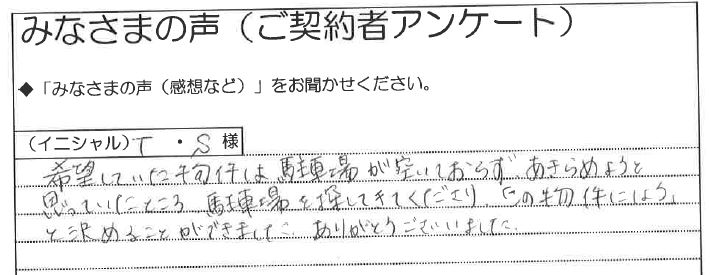 みなさまの声（ご契約者アンケート）
◆「みなさまの声（感想など）」をお聞かせください。
（イニシャル）T ・S 様
希望していた物件は駐車場が空いておらず、あきらめようと
思っていたところ、駐車場を探してきてくださり、「この物件にしよう」
と決めることができました。ありがとうございました。